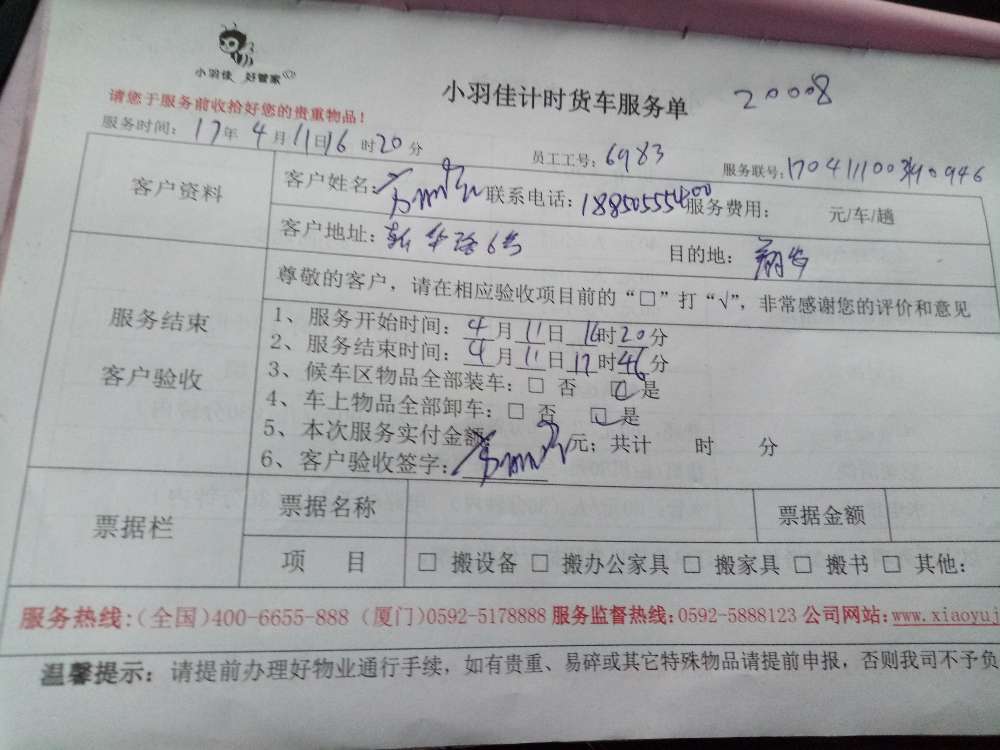 小羽佳 好管家
小羽佳计时货车服务单 20008
请您于服务前收拾好您的贵重物品！
服务时间：17年4月11日16时20分 员工工号：6983 服务联号：
客户资料 客户姓名： 联系电话： 服务费用： 元/车/趟
客户地址：新华路6号 目的地：
服务结束
客户验收
尊敬的客户，请在相应验收项目前的“□”打“√”，非常感谢您的评价和意见
1、服务开始时间：4月11日16时20分
2、服务结束时间：4月11日17时46分
3、候车区物品全部装车：□ 否 □ 是
4、车上物品全部卸车：□ 否 □ 是
5、本次服务实付金额 元；共计 时 分
6、客户验收签字：
票据栏 票据名称 票据金额
项 目 □ 搬设备 □ 搬办公家具 □ 搬家具 □ 搬书 □ 其他：
服务热线：（全国）400-6655-888 （厦门）0592-5178888 服务监督热线：0592-5888123 公司网站：www.xiaoyuj
温馨提示：请提前办理好物业通行手续，如有贵重、易碎或其它特殊物品请提前申报，否则我司不予负